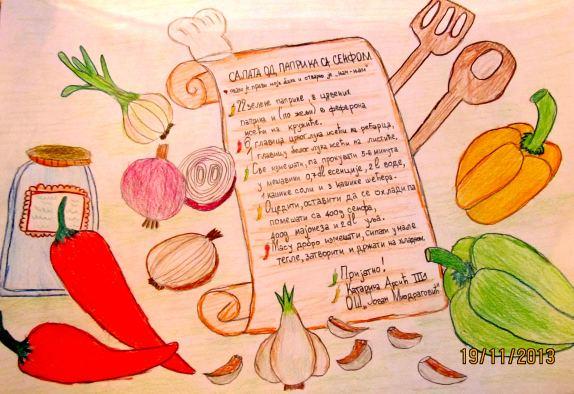 САЛАТА ОД ПАПРИКА СА СЕНФОМ
овај је прави моја бака и стварно је „њам-њам"
22 зелене паприке, 8 црвених
паприка и (по жељи) 8 феферона
исећи на кружиће.
6 главица црног лука исећи на ребарца,
1 главицу белог лука исећи на листиће,
Све измешати, па прокувати 5-6 минута
у мешавини 0,7 dl есенције, 2 l воде,
1 кашике соли и 3 кашике шећера.
Оцедити, оставити да се охлади па
помешати са 400g сенфа,
400g мајонеза и 2 dl уља.
Масу добро измешати, сипати у мале
тегле, затворити и држати на хладном.
Пријатно!
Катарина Арсић III
ОШ „Јован Миодраговић"
19/11/2013